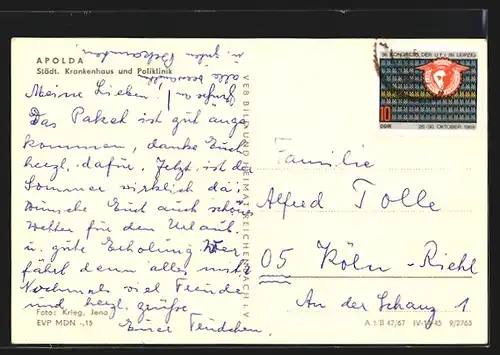 APOLDA
Städt. Krankenhaus und Poliklinik
u. guten Bekannten
Grüße an
alle
Meine Lieben!
Das Paket ist gut ange
kommen, danke Euch
herzl. dafür. Jetzt ist der
Sommer wirklich da,
wünsche Euch auch schön
Wetter für den Urlaub.
u. gute Erholung. Wer
fährt denn alles mit?
Nochmals viel Freude
und herzl. Grüße
Foto: Krieg, Jena
Eure
EVP MDN -,15
VEB BILD UND HEIMAT REICHENBACH I. V.
36. KONGRESS DER IN LEIPZIG
10
DDR
OKTOBER 1969
Familie
Alfred Tolle
05 Köln-Riehl
An der Schanz 1
A 1/B 47/67 IV-14-45 9/2763